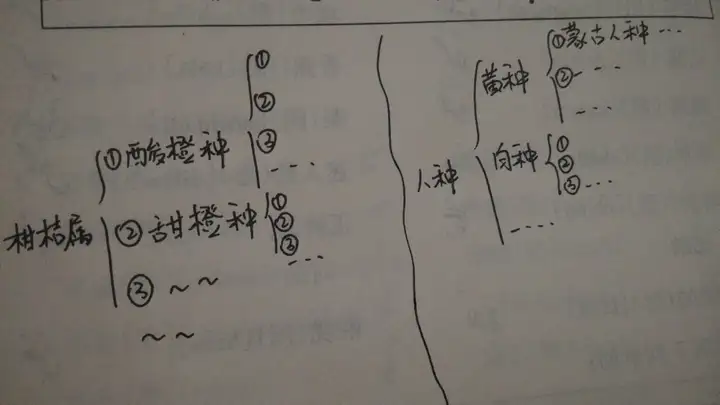 柑桔属
①酸橙种
①
②
③
....
②甜橙种
①
②
③
...
③~~
~~
人种
黄种
①蒙古人种...
②- - -
- ...
白种
①
②
③...
- ....